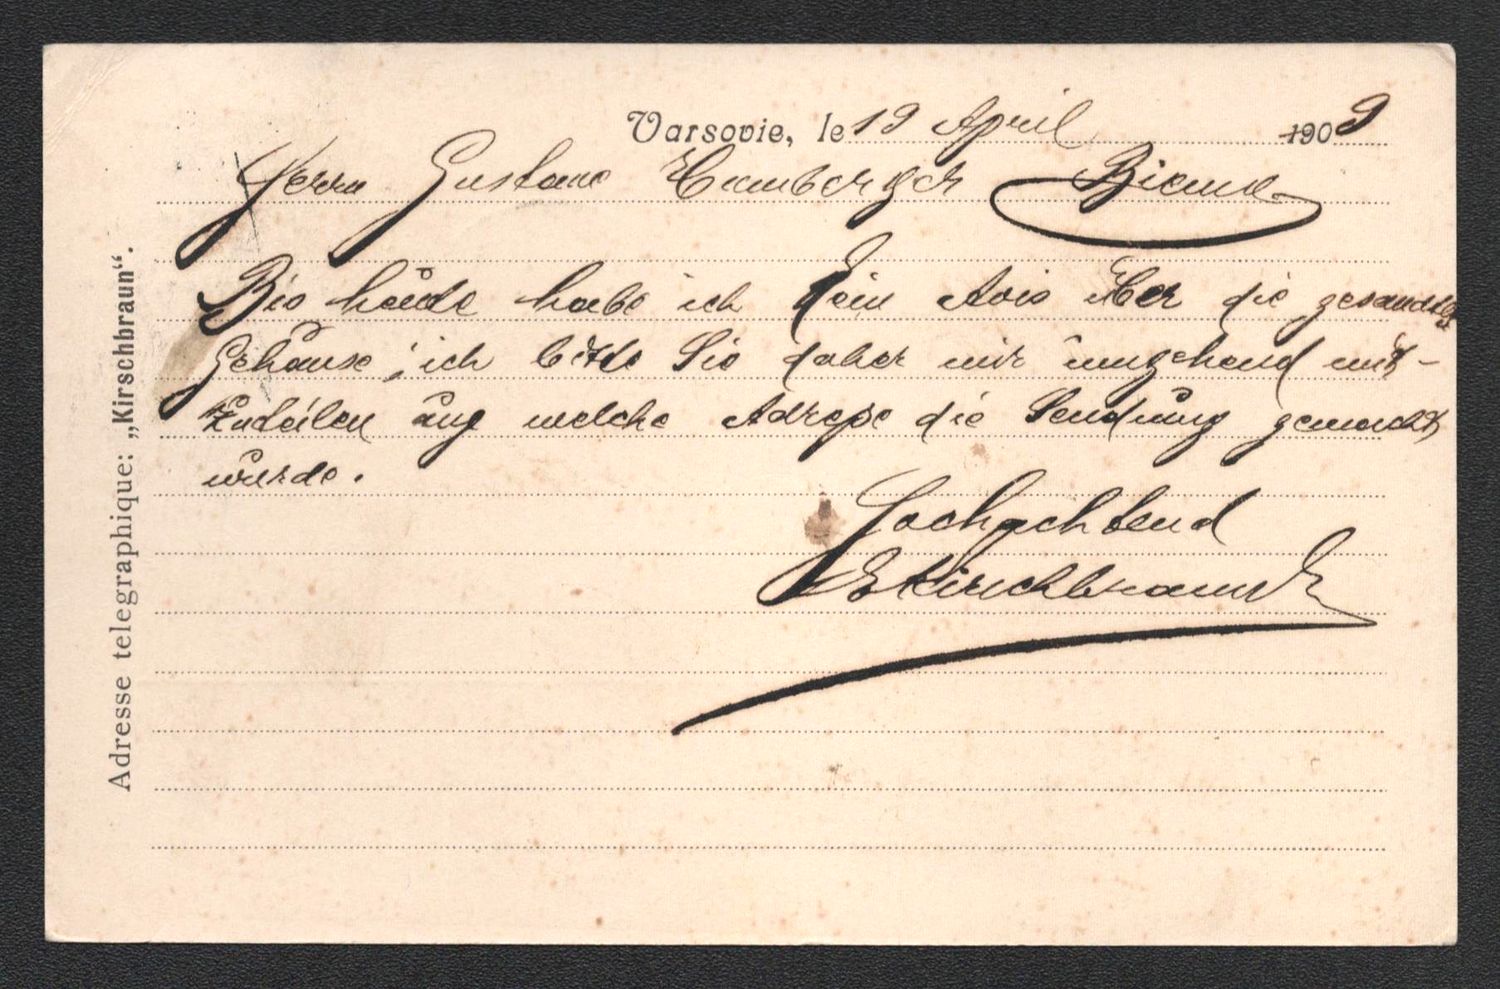 Varsovie, le 19 April 1909
Herrn Gustave Bamberger Bienne
Bis heute habe ich kein Avis über die gesandten
Gehäuse; ich bitte Sie daher mir umgehend mit-
zuteilen auf welche Adreße die Sendung gemacht
wurde.
Hochachtend
Kirschbraun
Adresse telegraphique: „Kirschbraun“.